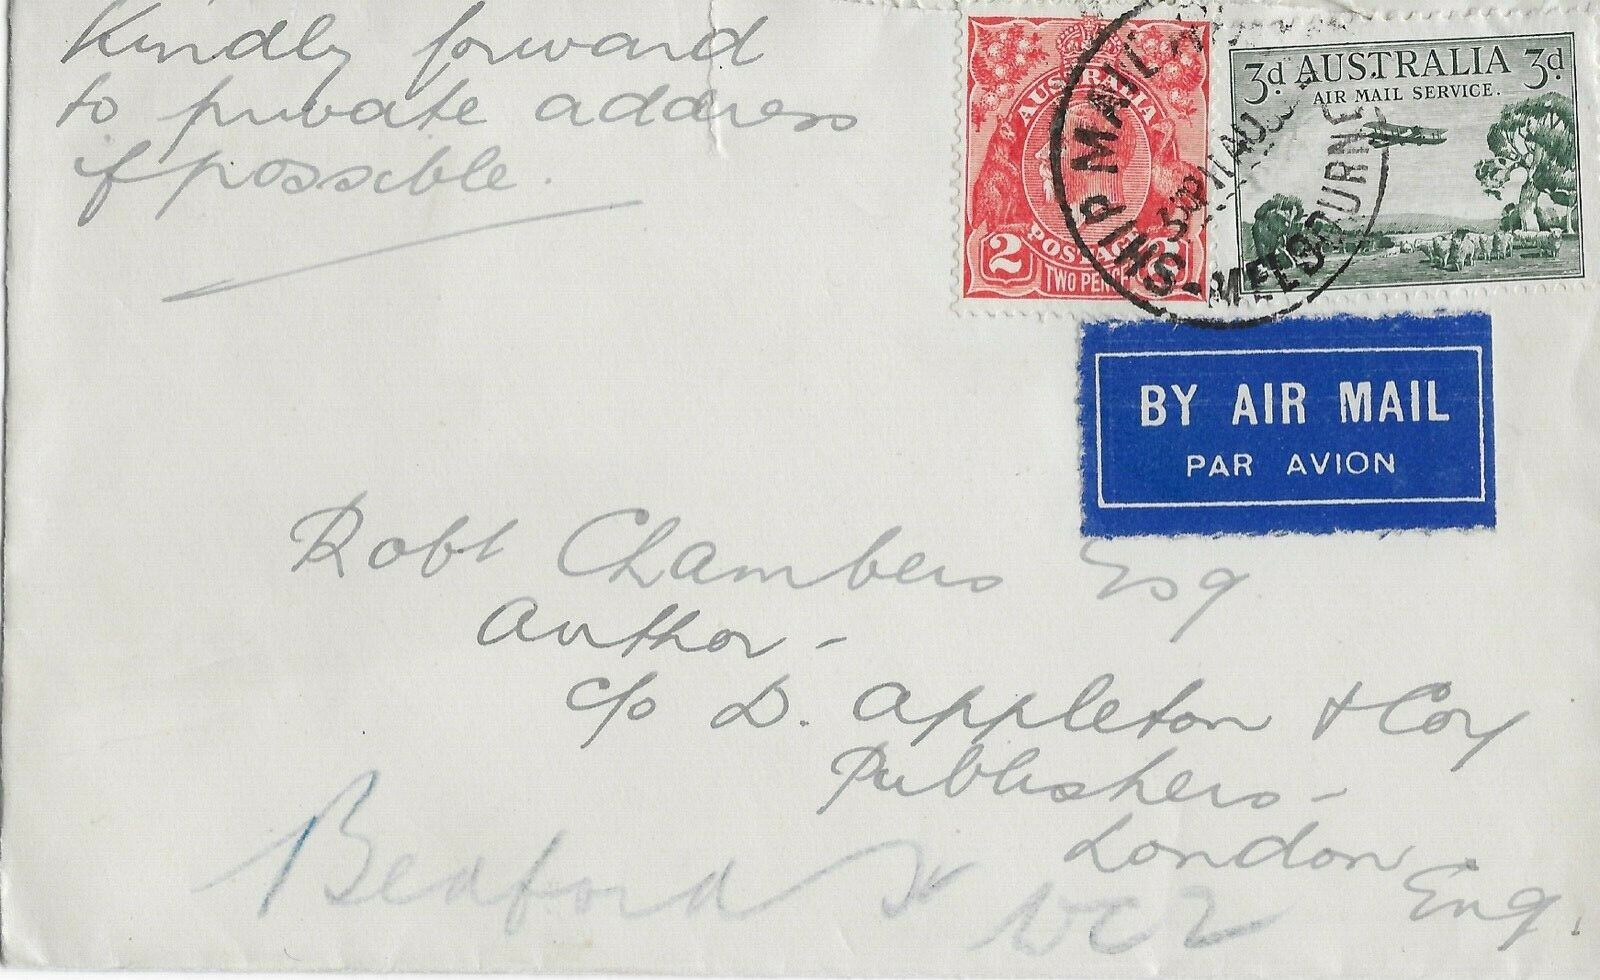 Kindly forward
to private address
if possible.
AUSTRALIA
2
POSTAGE
TWO PENCE
3d AUSTRALIA 3d
AIR MAIL SERVICE.
SHIP MAIL
MELBOURNE
BY AIR MAIL
PAR AVION
Robt Chambers Esq
Author -
c/o D. Appleton & Coy
Publishers -
London
Eng.
Bedford St
WC2